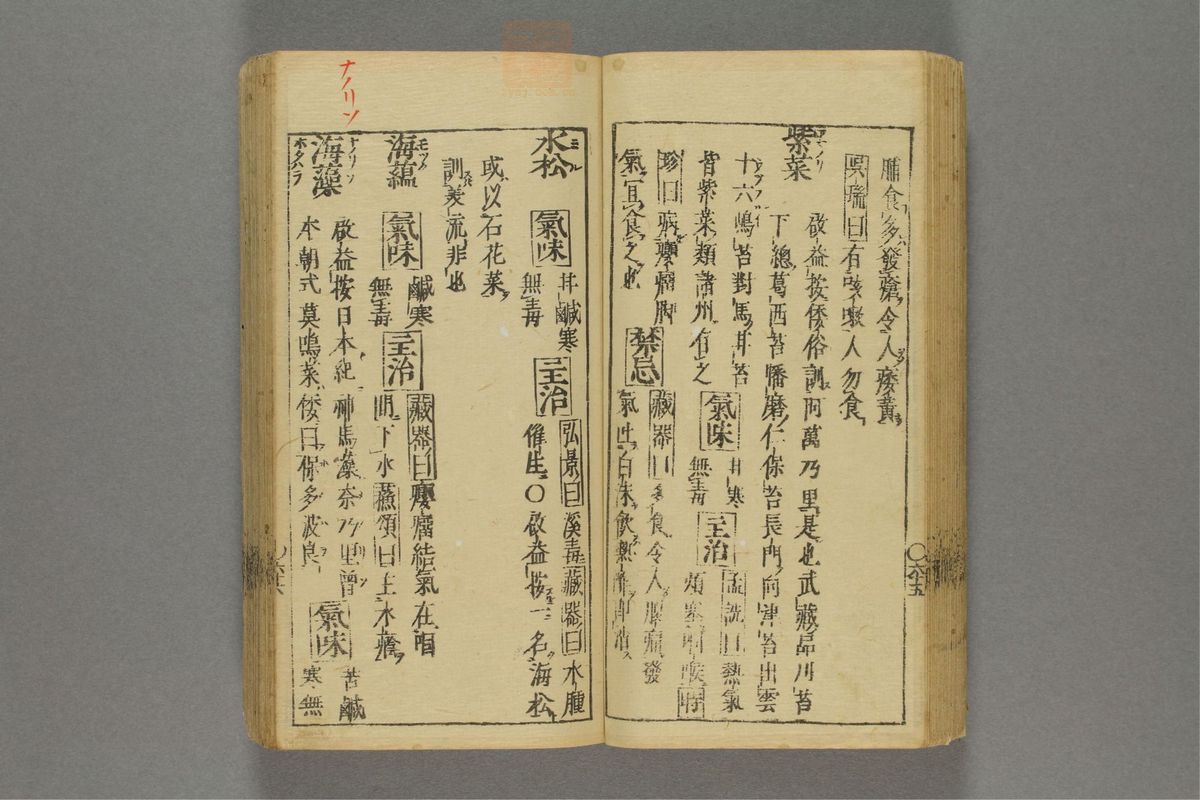 脯食多發瘡令人痿黃
吳瑞曰有咳嗽人勿食
紫菜
啟益按倭俗訓阿萬乃里是也武藏品川苔
下總葛西苔幡磨仁保苔長門向津苔出雲
十六嶋苔對馬耳苔
皆紫菜類諸州有之
氣味
甘寒
無毒
主治
孟詵曰熱氣
煩塞咽喉時
珍曰病癭瘤脚
氣宜食之也
禁忌
藏器曰多食令人腹痛發
氣吐白沫飲熱醋
六十五
水松
ミル
氣味
甘鹹寒
無毒
主治
弘景曰溪毒藏器曰水腫
催生〇啟益按一名海松
或以石花菜
訓美流非也
海蘊
モツク
氣味
鹹寒
無毒
主治
藏器曰癭瘤結氣在咽
間下水蘇頌曰主水癊
ナノリソ
海藻
ナノリソ
ホタハラ
啟益按日本紀神馬藻奈乃里曾
本朝式莫鳴菜倭曰保多波良
氣味
苦鹹
寒無
六十六